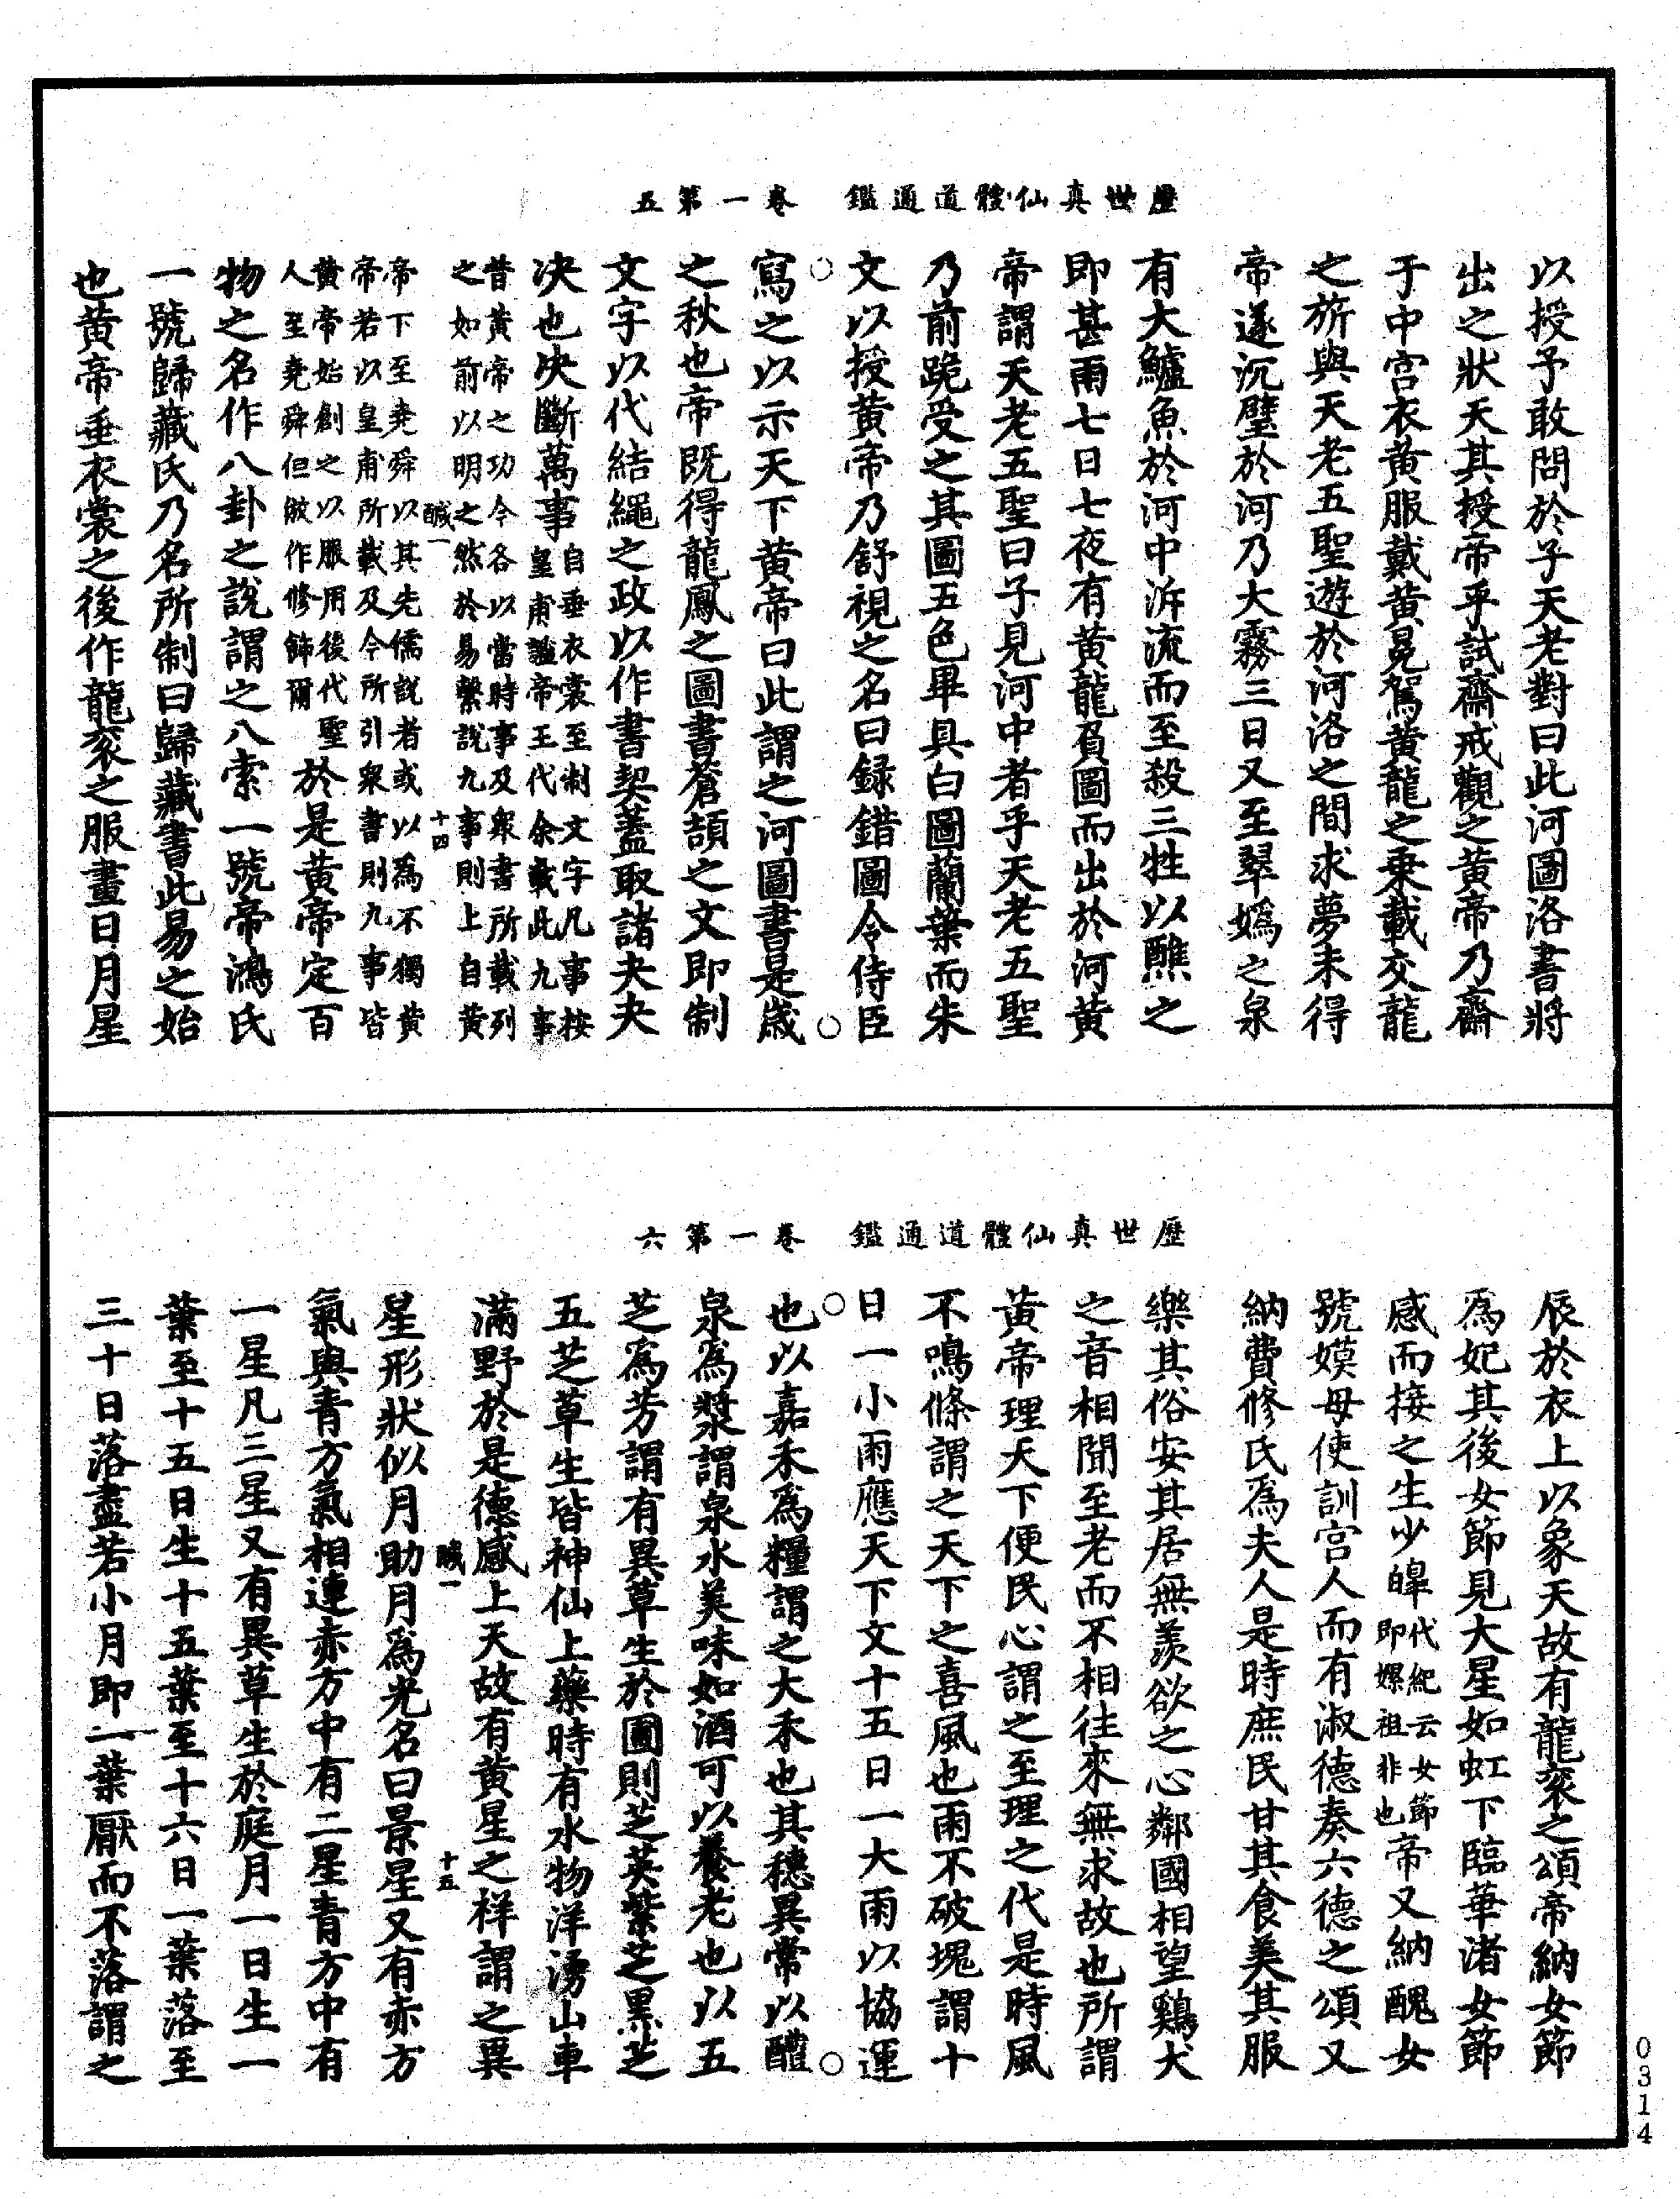 歷世真仙體道通鑑　卷一第五
以授予敢問於子天老對曰此河圖洛書將
出之狀天其授帝乎試齋戒觀之黃帝乃齋
于中宮衣黃服戴黃冕駕黃龍之乘載交龍
之旂與天老五聖遊於河洛之間求夢未得
帝遂沉璧於河乃大霧三日又至翠媯之泉
有大鱸魚於河中泝流而至殺三牲以醮之
即甚雨七日七夜有黃龍負圖而出於河黃
帝謂天老五聖曰子見河中者乎天老五聖
乃前跪受之其圖五色畢具白圖蘭葉而朱
文以授黃帝乃舒視之名曰錄錯圖令侍臣
寫之以示天下黃帝曰此謂之河圖書是歲
之秋也帝既得龍鳳之圖書蒼頡之文即制
文字以代結繩之政以作書契蓋取諸夬夬
决也决斷萬事自垂衣裳至制文字凡九事按皇甫謐帝王代余載此九事
昔黃帝之功今各以當時事及衆書所載列之如前以明之然於易繫說九事則上自黃
䤴一　十四
帝下至堯舜以其先儒說者或以爲不獨黃帝若以皇甫所載及今所引衆書則九事皆
黃帝始創之以服用後代聖人至堯舜但倣作修飾爾於是黃帝定百
物之名作八卦之說謂之八索一號帝鴻氏
一號歸藏氏乃名所制曰歸藏書此易之始
也黃帝垂衣裳之後作龍袞之服畫日月星
歷世真仙體道通鑑　卷一第六
辰於衣上以象天故有龍袞之頌帝納女節
爲妃其後女節見大星如虹下臨華渚女節
感而接之生少皥代紀云女節即嫘祖非也帝又納醜女
號嫫母使訓宮人而有淑德奏六德之頌又
納費修氏爲夫人是時庶民甘其食美其服
樂其俗安其居無羨欲之心鄰國相望鷄犬
之音相聞至老而不相往來無求故也所謂
黃帝理天下便民心謂之至理之代是時風
不鳴條謂之天下之喜風也雨不破塊謂十
日一小雨應天下文十五日一大雨以協運
也以嘉禾爲糧謂之大禾也其穗異常以醴
泉爲漿謂泉水美味如酒可以養老也以五
芝爲芳謂有異草生於圃則芝英紫芝黑芝
五芝草生皆神仙上藥時有水物洋湧山車
滿野於是德感上天故有黃星之祥謂之異
䤴一　十五
星形狀似月助月爲光名曰景星又有赤方
氣與青方氣相連赤方中有二星青方中有
一星凡三星又有異草生於庭月一日生一
葉至十五日生十五葉至十六日一葉落至
三十日落盡若小月即一葉厭而不落謂之
0314